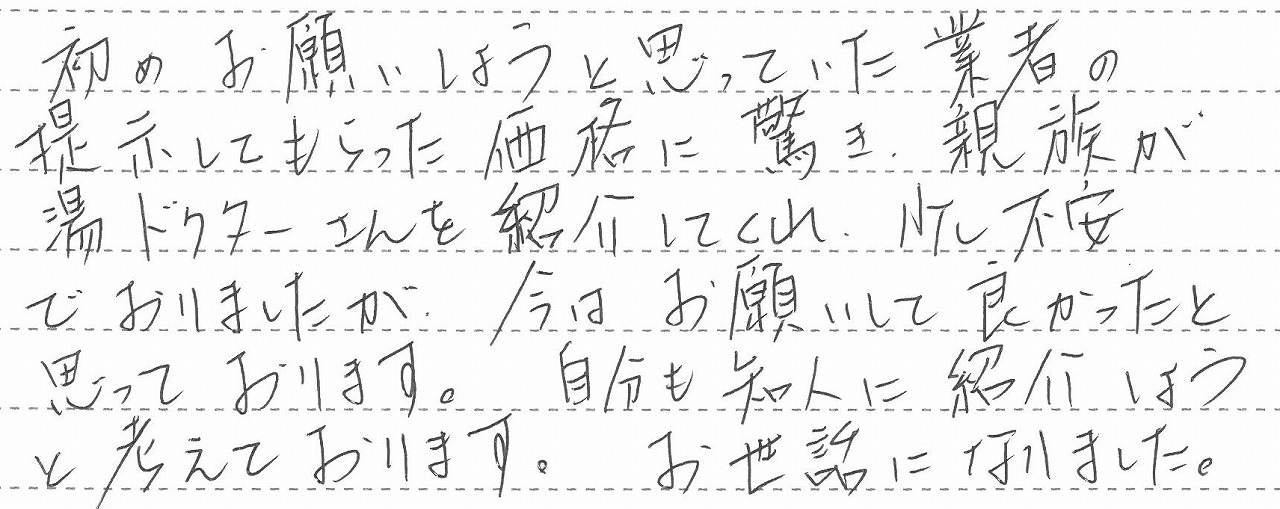 初めお願いしようと思っていた業者の
提示してもらった価格に驚き、親族が
湯ドクターさんを紹介してくれ、少し不安
でおりましたが、今はお願いして良かったと
思っております。 自分も知人に紹介しよう
と考えております。 お世話になりました。